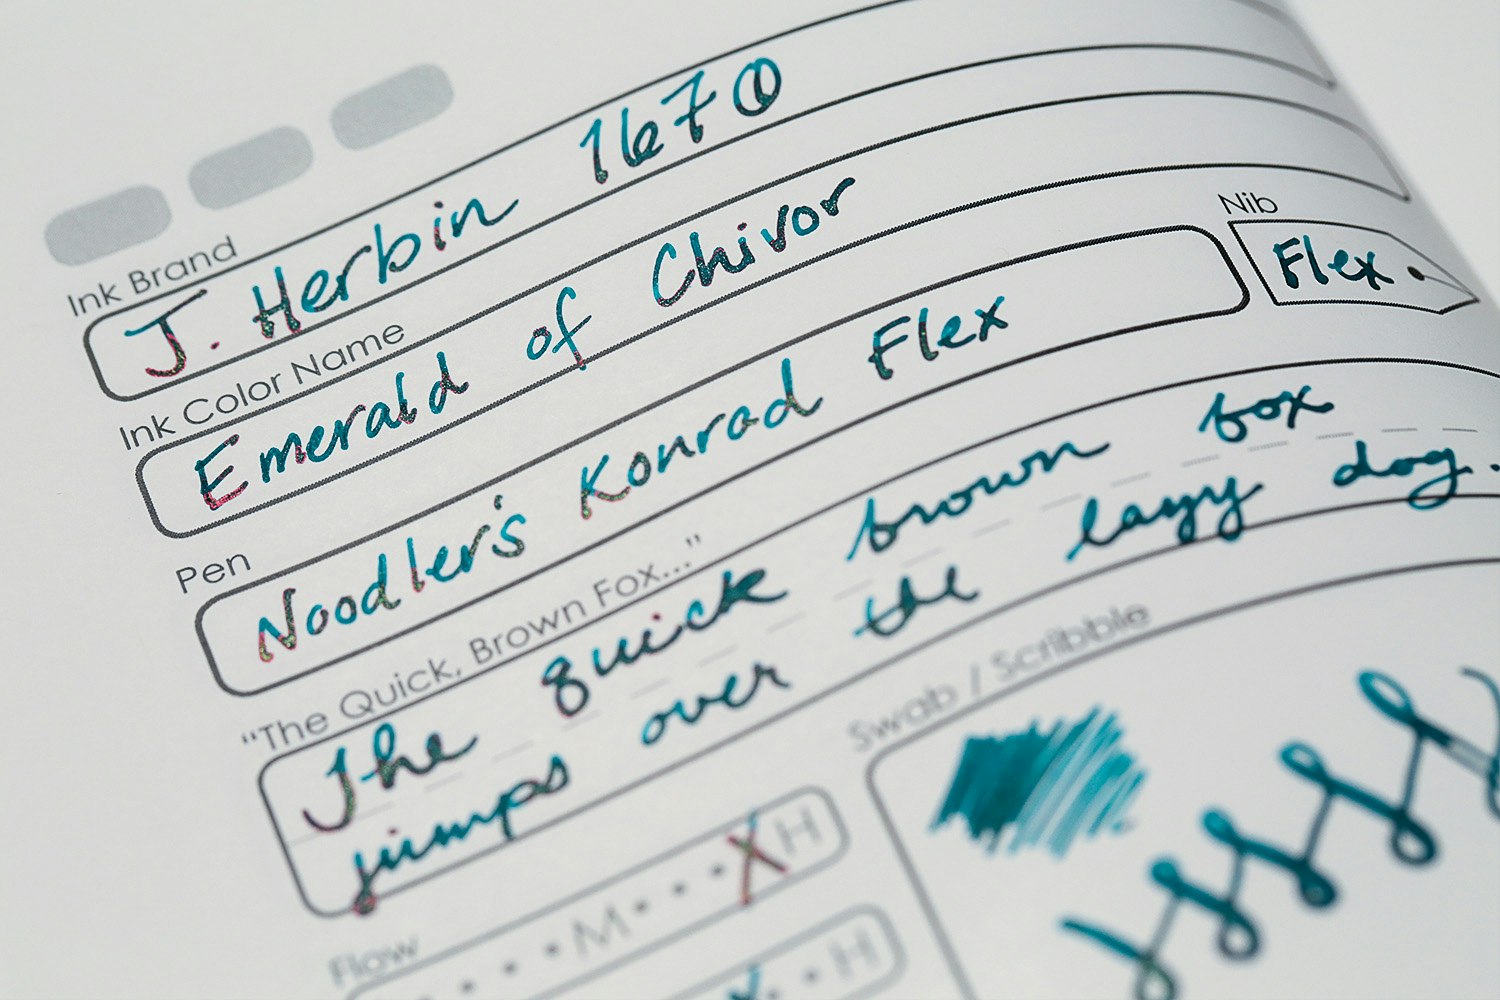 Ink Brand
J. Herbin 1670
Ink Color Name
Emerald of Chivor
Pen
Noodler's Konrad Flex
Nib
Flex
"The Quick, Brown Fox..."
The quick brown fox
jumps over the lazy dog.
Flow
M X H
X H
Swab / Scribble